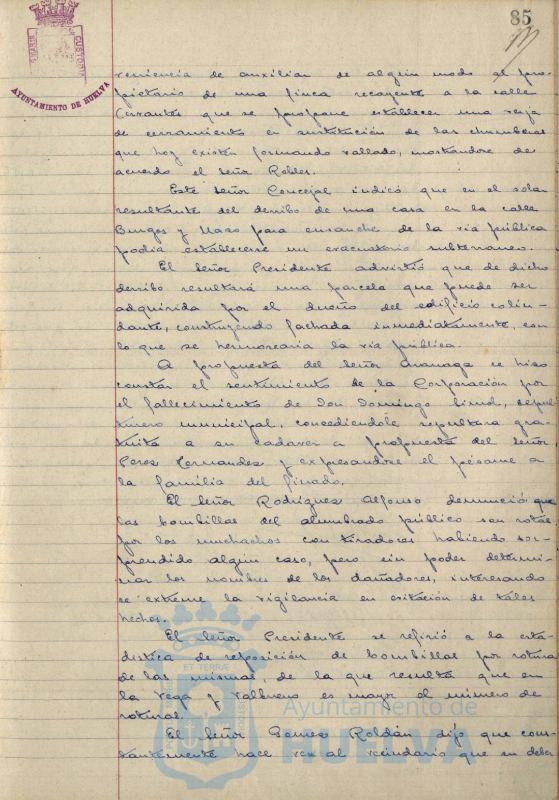 85
AYUNTAMIENTO DE HUELVA
CUSTODIA
veniencia de auxiliar de algún modo al pro-
pietario de una finca recayente a la calle
Cervantes que se propone establecer una verja
de cerramiento en sustitución de las chumberas
que hoy existen formando vallado, mostrándose de
acuerdo el señor Robles.
Este señor Concejal indicó que en el solar
resultante del derribo de una casa en la calle
Burgos y Mazo para ensanche de la vía pública
podía establecerse un evacuatorio subterráneo.
El Señor Presidente advirtió que de dicho
derribo resultará una parcela que puede ser
adquirida por el dueño del edificio colin-
dante, construyendo fachada inmediatamente, con
lo que se hermosearía la vía pública.
A propuesta del Señor se hizo
constar el sentimiento de la Corporación por
el fallecimiento de Don Domingo sepul-
turero municipal, concediéndole sepultura gra-
tuita a su cadaver a propuesta del señor
Perez Hernandez y expresándose el pésame a
la familia del finado.
El Señor Rodríguez Alfonso denunció que
las bombillas del alumbrado público son rotas
por los muchachos con tiradores habiendo sor-
prendido algún caso, pero sin poder determi-
nar los nombres de los dañadores, interesando
se extreme la vigilancia en evitación de tales
hechos.
El Señor Presidente se refirió a la esta-
dística de reposición de bombillas por rotura
de las mismas, de la que resulta que en
la Vega y Valbueno es mayor el número de
roturas.
El Señor Gomez Roldán dijo que cons-
tantemente hace ver al vecindario que su deber
ET TERRA
Ayuntamiento de
HUELVA